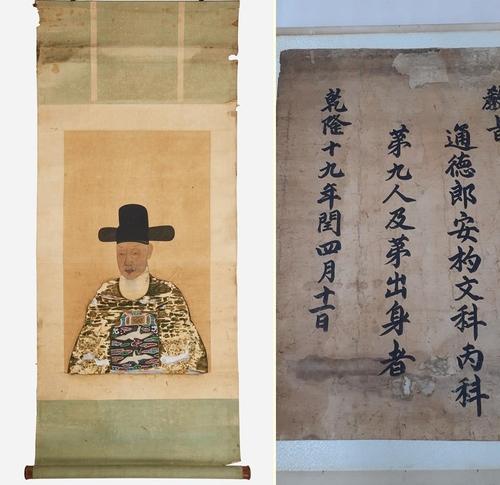 通德郎安杓文科丙科
第九人及第出身者
乾隆十九年閏四月十一日